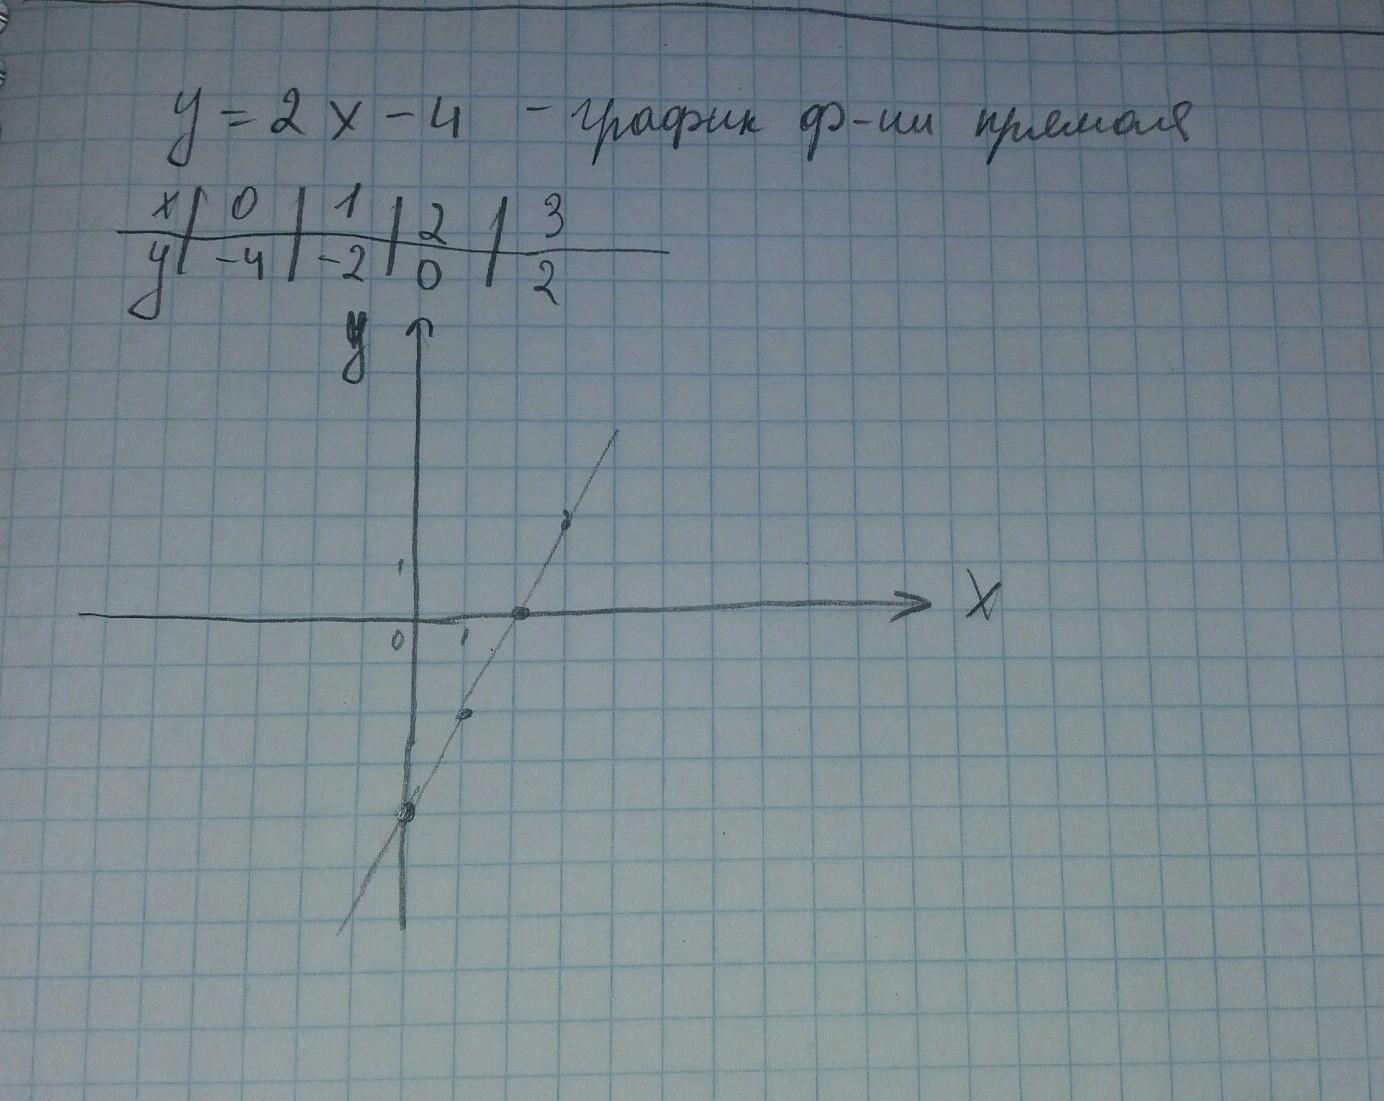 y = 2x - 4 - график ф-ии прямая
x | 0 | 1 | 2 | 3
y | -4 | -2 | 0 | 2
y
1
x
0 1